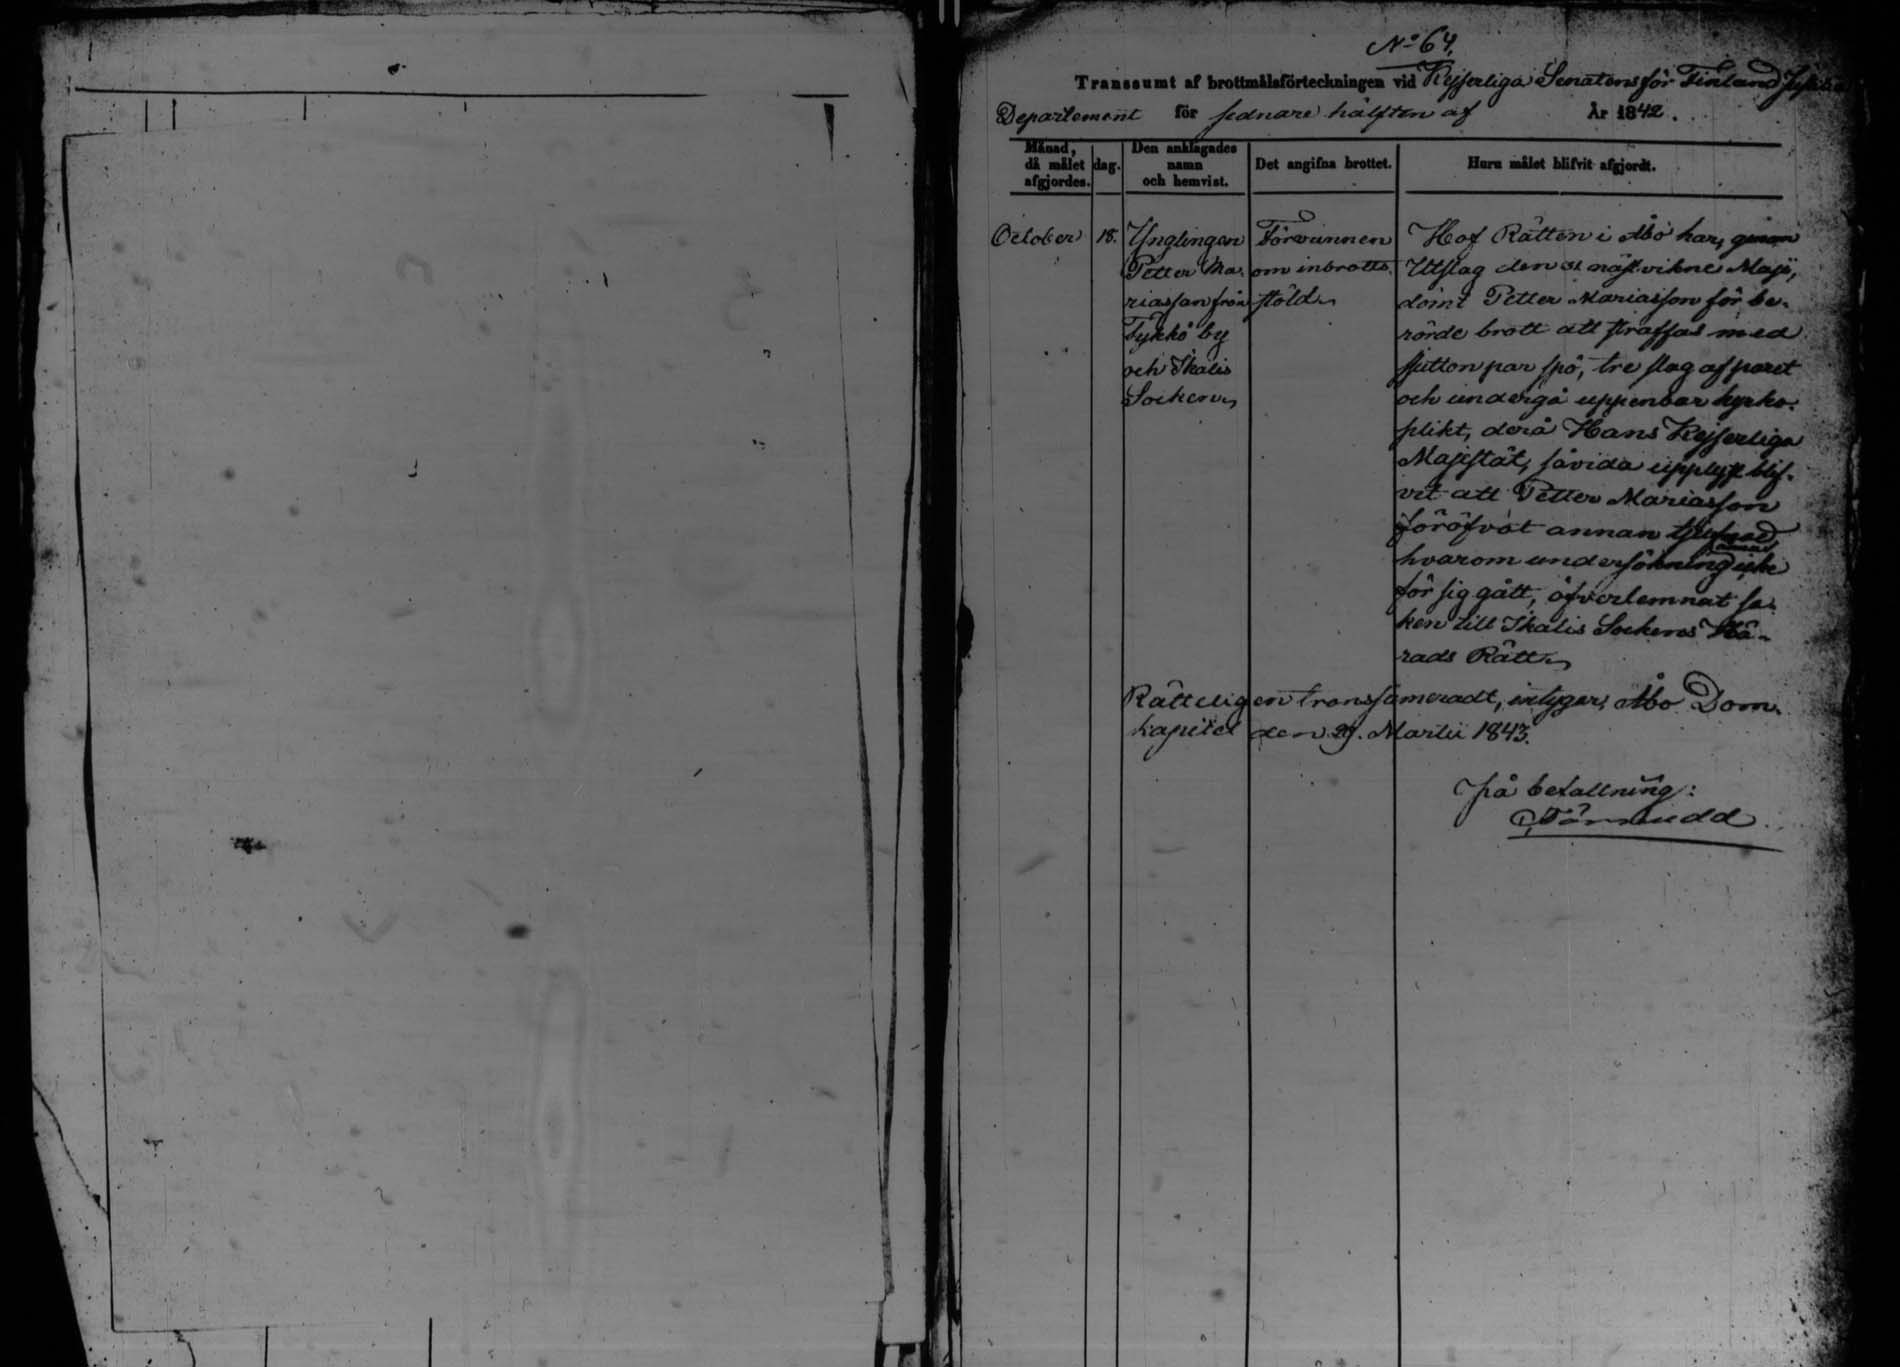 No 64.
Transsumt af brottmålsförteckningen vid Kejserliga Senatens för Finland Justitie
Departement för sednare hälften af År 1842.
Månad, då målet afgjordes.
dag.
Den anklagades namn och hemvist.
Det angifna brottet.
Huru målet blifvit afgjordt.
October
18.
Ynglingen
Petter Ma-
riasson från
Tykkö by
och Ikalis
Socken
Förvunnen
om inbrotts-
stöld
Hof Rätten i Åbo har, genom
Utslag den 31 näst vikne Maji,
dömt Petter Mariasson för be-
rörde brott att straffas med
sjutton par spö, tre slag af paret
och undergå uppenbar kyrko-
plikt, derå Hans Kejserliga
Majestät, såvida upplyst blif-
vit att Petter Mariasson
föröfvat annan tjufnad
hvarom undersökning icke
för sig gått, öfverlemnat sa-
ken till Ikalis Sockens Hä-
rads Rätt
Rätteligen transsumeradt, intygar, Åbo Dom-
kapitel den 29. Martii 1843.
På befallning:
Törnudd